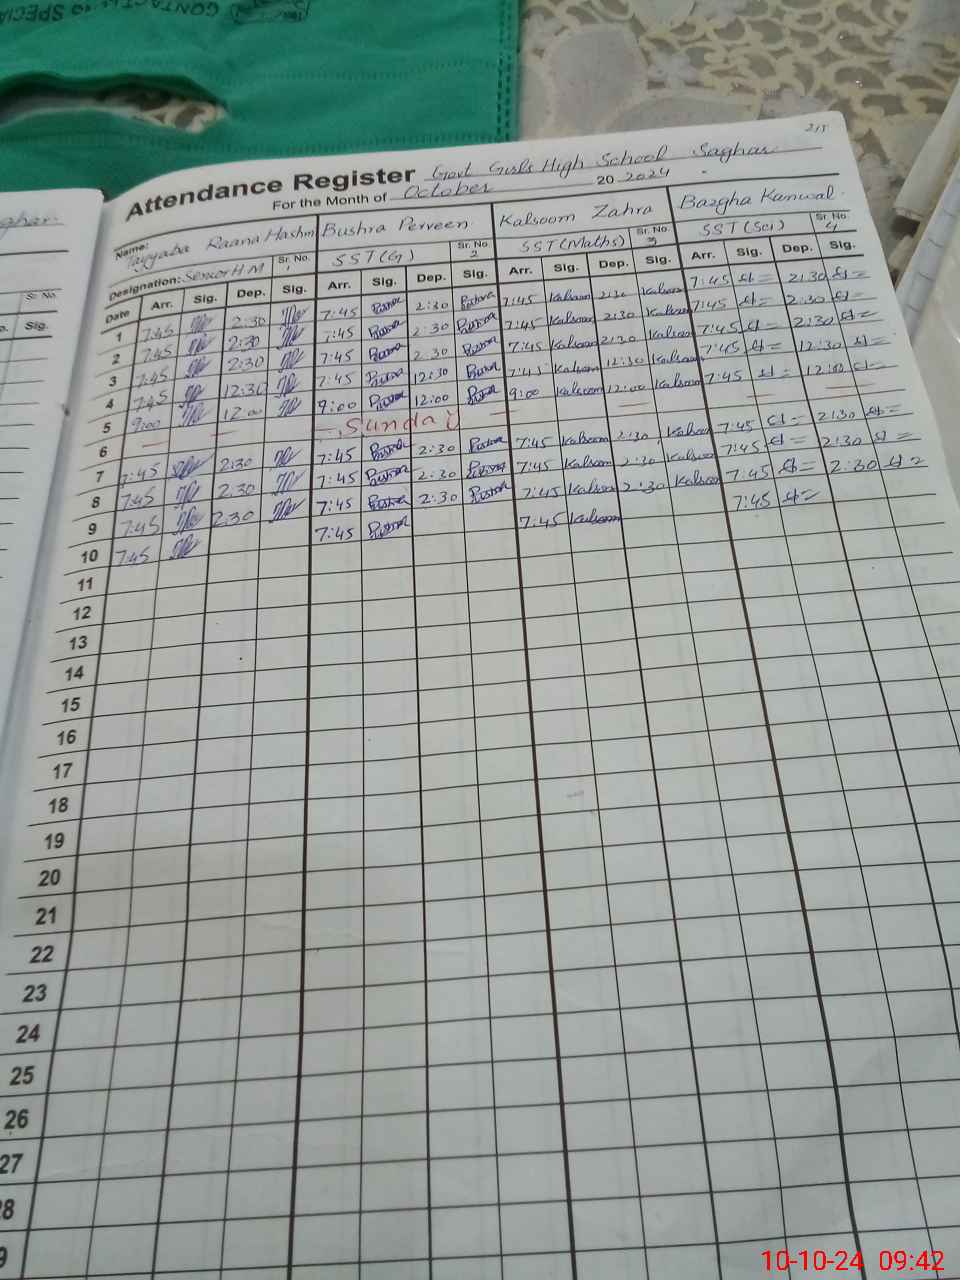 CONTACT
SPECI
215
Attendance Register Govt Girls High School Saghar
For the Month of October 20 2024
ghar.
Name: Tayyaba Raana Hashm Bushra Perveen Kalsoom Zahra Bazgha Kunwal
Designation: Senior H M Sr. No. 1 SST(G) Sr. No. 2 SST(Maths) Sr. No. 3 SST(Sci) Sr. No. 4
Date Arr. Sig. Dep. Sig. Arr. Sig. Dep. Sig. Arr. Sig. Dep. Sig. Arr. Sig. Dep. Sig.
1 7:45 2:30 7:45 2:30 7:45 Kalsoom 2:30 Kalsoom 7:45 2:30
2 7:45 2:30 7:45 2:30 7:45 Kalsoom 2:30 Kalsoom 7:45 2:30
3 7:45 2:30 7:45 2:30 7:45 Kalsoom 2:30 Kalsoom 7:45 2:30
4 7:45 12:30 7:45 12:30 7:45 Kalsoom 12:30 Kalsoom 7:45 12:30
5 9:00 12:00 9:00 12:00 9:00 Kalsoom 12:00 Kalsoom 7:45 12:00
6 Sunday
7 7:45 2:30 7:45 2:30 7:45 Kalsoom 2:30 Kalsoom 7:45 2:30
8 7:45 2:30 7:45 2:30 7:45 Kalsoom 2:30 Kalsoom 7:45 2:30
9 7:45 2:30 7:45 2:30 7:45 Kalsoom 2:30 Kalsoom 7:45 2:30
10 7:45 7:45 7:45 Kalsoom 7:45
11
12
13
14
15
16
17
18
19
20
21
22
23
24
25
26
27
28
9
Sr. No.
Sig.
10-10-24 09:42